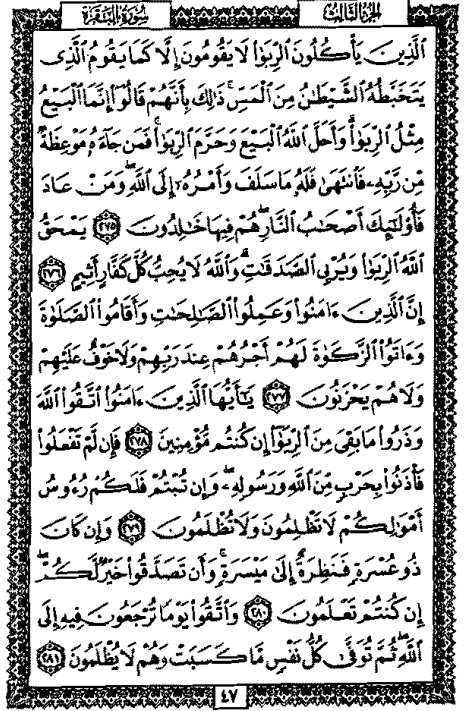 سُورَةُ البَقَرَةِ
الجُزْءُ الثَّالِثُ
ٱلَّذِينَ يَأْكُلُونَ ٱلرِّبَوٰا۟ لَا يَقُومُونَ إِلَّا كَمَا يَقُومُ ٱلَّذِى
يَتَخَبَّطُهُ ٱلشَّيْطَٰنُ مِنَ ٱلْمَسِّ ۚ ذَٰلِكَ بِأَنَّهُمْ قَالُوٓا۟ إِنَّمَا ٱلْبَيْعُ
مِثْلُ ٱلرِّبَوٰا۟ ۗ وَأَحَلَّ ٱللَّهُ ٱلْبَيْعَ وَحَرَّمَ ٱلرِّبَوٰا۟ ۚ فَمَن جَآءَهُۥ مَوْعِظَةٌ
مِّن رَّبِّهِۦ فَٱنتَهَىٰ فَلَهُۥ مَا سَلَفَ وَأَمْرُهُۥٓ إِلَى ٱللَّهِ ۖ وَمَنْ عَادَ
فَأُو۟لَٰٓئِكَ أَصْحَٰبُ ٱلنَّارِ ۖ هُمْ فِيهَا خَٰلِدُونَ ٢٧٥ يَمْحَقُ
ٱللَّهُ ٱلرِّبَوٰا۟ وَيُرْبِى ٱلصَّدَقَٰتِ ۗ وَٱللَّهُ لَا يُحِبُّ كُلَّ كَفَّارٍ أَثِيمٍ ٢٧٦
إِنَّ ٱلَّذِينَ ءَامَنُوا۟ وَعَمِلُوا۟ ٱلصَّٰلِحَٰتِ وَأَقَامُوا۟ ٱلصَّلَوٰةَ
وَءَاتَوُا۟ ٱلزَّكَوٰةَ لَهُمْ أَجْرُهُمْ عِندَ رَبِّهِمْ وَلَا خَوْفٌ عَلَيْهِمْ
وَلَا هُمْ يَحْزَنُونَ ٢٧٧ يَٰٓأَيُّهَا ٱلَّذِينَ ءَامَنُوا۟ ٱتَّقُوا۟ ٱللَّهَ
وَذَرُوا۟ مَا بَقِىَ مِنَ ٱلرِّبَوٰٓا۟ إِن كُنتُم مُّؤْمِنِينَ ٢٧٨ فَإِن لَّمْ تَفْعَلُوا۟
فَأْذَنُوا۟ بِحَرْبٍ مِّنَ ٱللَّهِ وَرَسُولِهِۦ ۖ وَإِن تُبْتُمْ فَلَكُمْ رُءُوسُ
أَمْوَٰلِكُمْ لَا تَظْلِمُونَ وَلَا تُظْلَمُونَ ٢٧٩ وَإِن كَانَ
ذُو عُسْرَةٍ فَنَظِرَةٌ إِلَىٰ مَيْسَرَةٍ ۚ وَأَن تَصَدَّقُوا۟ خَيْرٌ لَّكُمْ ۖ
إِن كُنتُمْ تَعْلَمُونَ ٢٨٠ وَٱتَّقُوا۟ يَوْمًا تُرْجَعُونَ فِيهِ إِلَى
ٱللَّهِ ۖ ثُمَّ تُوَفَّىٰ كُلُّ نَفْسٍ مَّا كَسَبَتْ وَهُمْ لَا يُظْلَمُونَ ٢٨١
٤٧